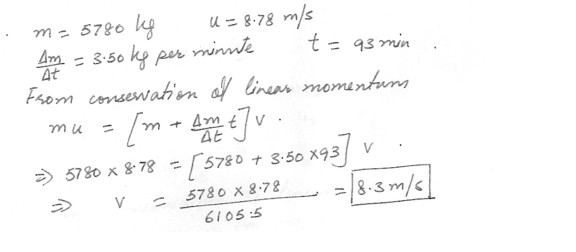 . m = 5780 kg u = 8.78 m/s
Δm/Δt = 3.50 kg per minute t = 93 min .
From conservation of linear momentum
mu = [m + Δm/Δt t] v .
⇒ 5780 × 8.78 = [5780 + 3.50 × 93] v .
⇒ v = 5780 × 8.78 / 6105.5 = 8.3 m/s